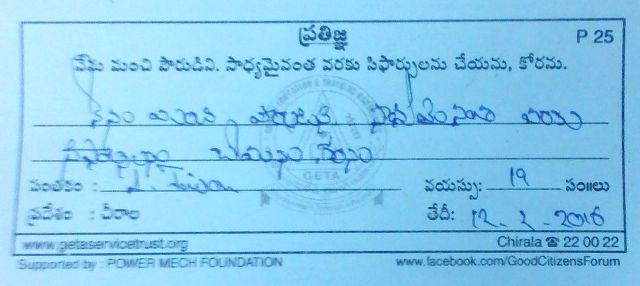 ప్రతిజ్ఞ P 25
నేను మంచి పౌరుడిని. సాధ్యమైనంత వరకు సిఫార్సులను చేయను, కోరను.
నేను మంచి పౌరుడిని సాధ్యమైనంత వరకు
సిఫార్సులను చేయను కోరను
సంతకం : వయస్సు: 19 సం॥లు
ప్రదేశం : చీరాల తేదీ: 12-2-2016
GETA
www.getaservicetrust.org Chirala ☎ 22 00 22
Supported by : POWER MECH FOUNDATION www.facebook.com/GoodCitizensForum